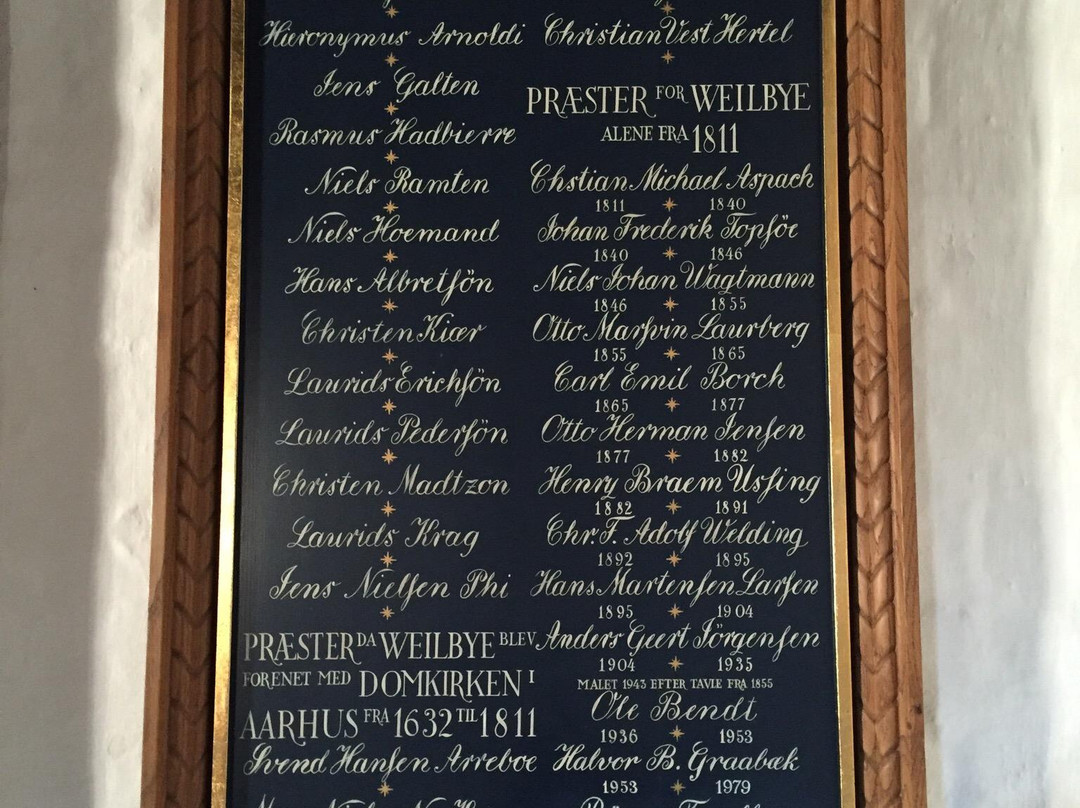 Hieronymus Arnoldi
Jens Galten
Rasmus Hadbierre
Niels Ramten
Niels Hoemand
Hans Albretsön
Christen Kiær
Laurids Erichsön
Laurids Pedersön
Christen Madtzon
Laurids Krag
Jens Nielsen Phi
PRÆSTER DA WEILBYE BLEV
FORENET MED DOMKIRKEN I
AARHUS FRA 1632 TIL 1811
Svend Hansen Arreboe
Christian Vest Hertel
PRÆSTER FOR WEILBYE
ALENE FRA 1811
Chstian Michael Aspach
1811 1840
Johan Frederik Topsöe
1840 1846
Niels Johan Wagtmann
1846 1855
Otto Marsvin Laurberg
1855 1865
Carl Emil Borch
1865 1877
Otto Herman Jensen
1877 1882
Henry Braem Ussing
1882 1891
Chr. F. Adolf Welding
1892 1895
Hans Martensen Larsen
1895 1904
Anders Geert Jörgensen
1904 1935
MALET 1943 EFTER TAVLE FRA 1855
Ole Bendt
1936 1953
Halvor B. Graabæk
1953 1979